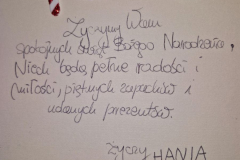 Życzymy Wam
spokojnych Świąt Bożego Narodzenia,
Niech będą pełne radości i
miłości, pięknych zapachów i
udanych prezentów.
Życzy HANIA